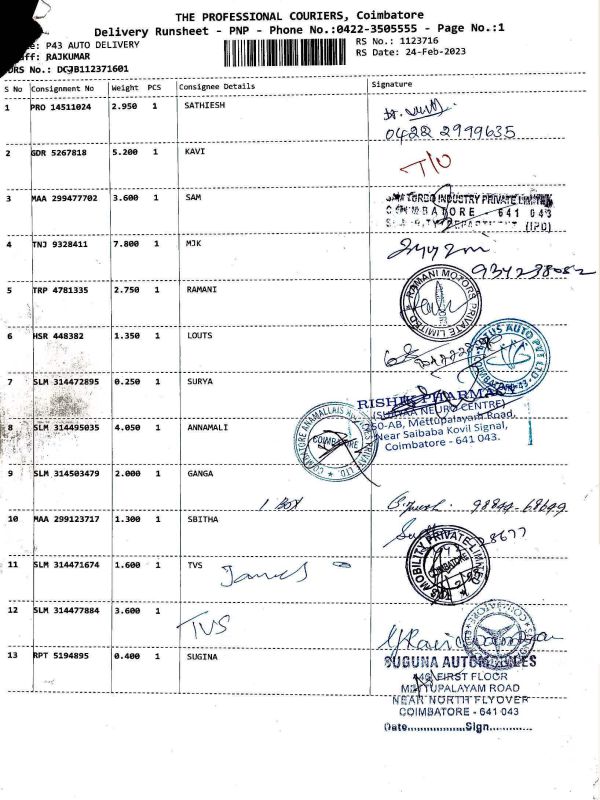 THE PROFESSIONAL COURIERS, Coimbatore
Delivery Runsheet - PNP - Phone No.:0422-3505555 - Page No.:1
P43 AUTO DELIVERY RS No.: 1123716
RAJKUMAR RS Date: 24-Feb-2023
DRS No.: DCJB112371601
S No Consignment No Weight PCS Consignee Details Signature
1 PRO 14511024 2.950 1 SATHIESH
0422 2999635
2 GDR 5267818 5.200 1 KAVI
T/O
3 MAA 299477702 3.600 1 SAM
TURBO INDUSTRY PRIVATE LIMITED
COIMBATORE - 641 043
(IPD)
4 TNJ 9328411 7.800 1 MJK
5 TRP 4781335 2.750 1 RAMANI
RAMANI MOTORS PRIVATE LIMITED
6 HSR 448382 1.350 1 LOUTS
LOTUS AUTO PVT LTD
COIMBATORE-43
7 SLM 314472895 0.250 1 SURYA
RISHI PHARMACY
(SURYAA NEURO CENTRE)
250-AB, Mettupalayam Road,
Near Saibaba Kovil Signal,
Coimbatore - 641 043.
8 SLM 314495035 4.050 1 ANNAMALI
COIMBATORE ANAMALLAIS PRIVATE LTD.
COIMBATORE
9 SLM 314503479 2.000 1 GANGA
1 BOX 98894-68699
10 MAA 299123717 1.300 1 SBITHA
28677
MOBILITY PRIVATE LIMITED
COIMBATORE
11 SLM 314471674 1.600 1 TVS
12 SLM 314477884 3.600 1
TVS
13 RPT 5194895 0.400 1 SUGINA
SUGUNA AUTOMOBILES
FIRST FLOOR
METTUPALAYAM ROAD
NEAR NORTH FLYOVER
COIMBATORE - 641 043
Date..................Sign.............